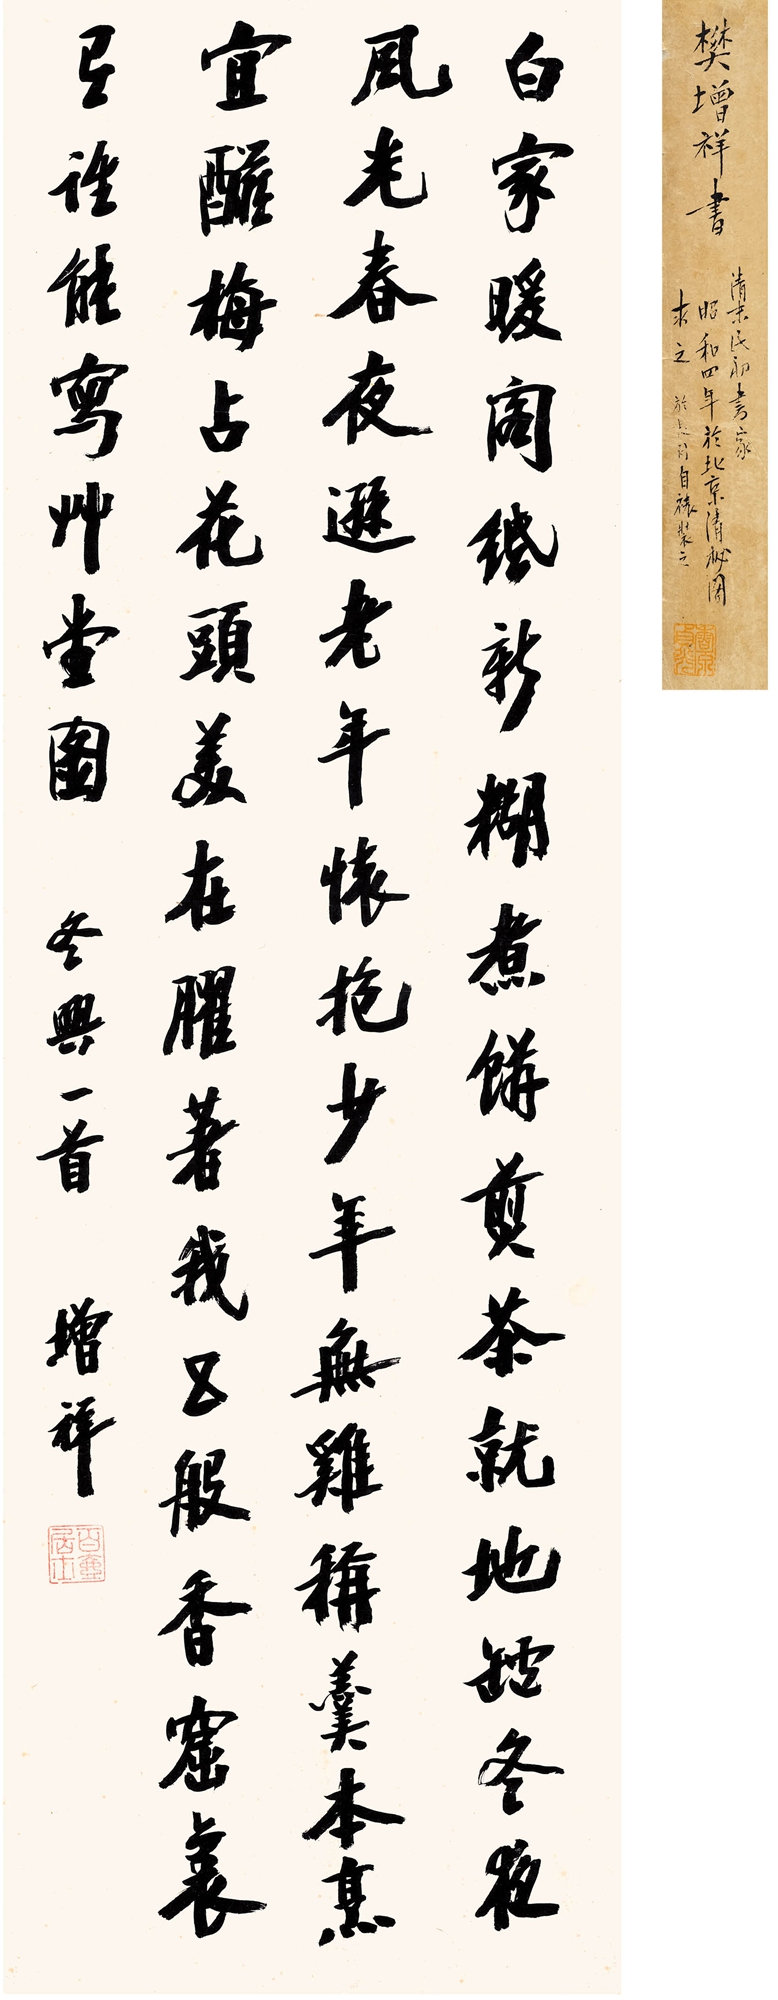 白家暖閣紙新糊煮餅煎茶就地鑪冬夜
風光春夜遜老年懷抱少年無雞稱羹本烹
宜臛梅占花頭美在臞著我五般香窟裏
是誰能寫艸堂圖
冬興一首
增祥
樊增祥書
清末民初書家
昭和四年於北京清祕閣
求之
自裱裝之